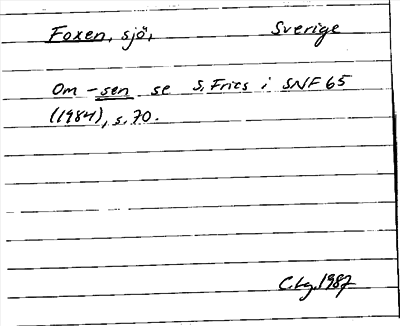 Foxen, sjö, Sverige
Om -sen se S. Fries i SNF 65
(1984), s. 70.
C. Lg. 1987